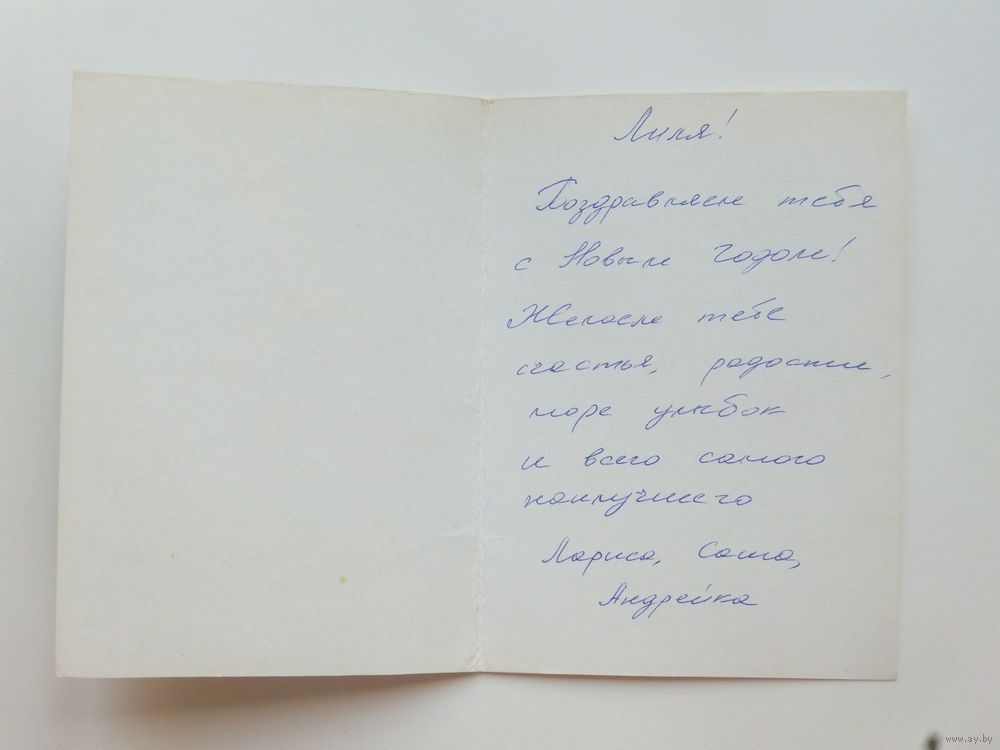 Лиля!
Поздравляем тебя
с Новым Годом!
Желаем тебе
счастья, радости,
море улыбок
и всего самого
наилучшего
Лариса, Саша,
Андрейка
www.ay.by